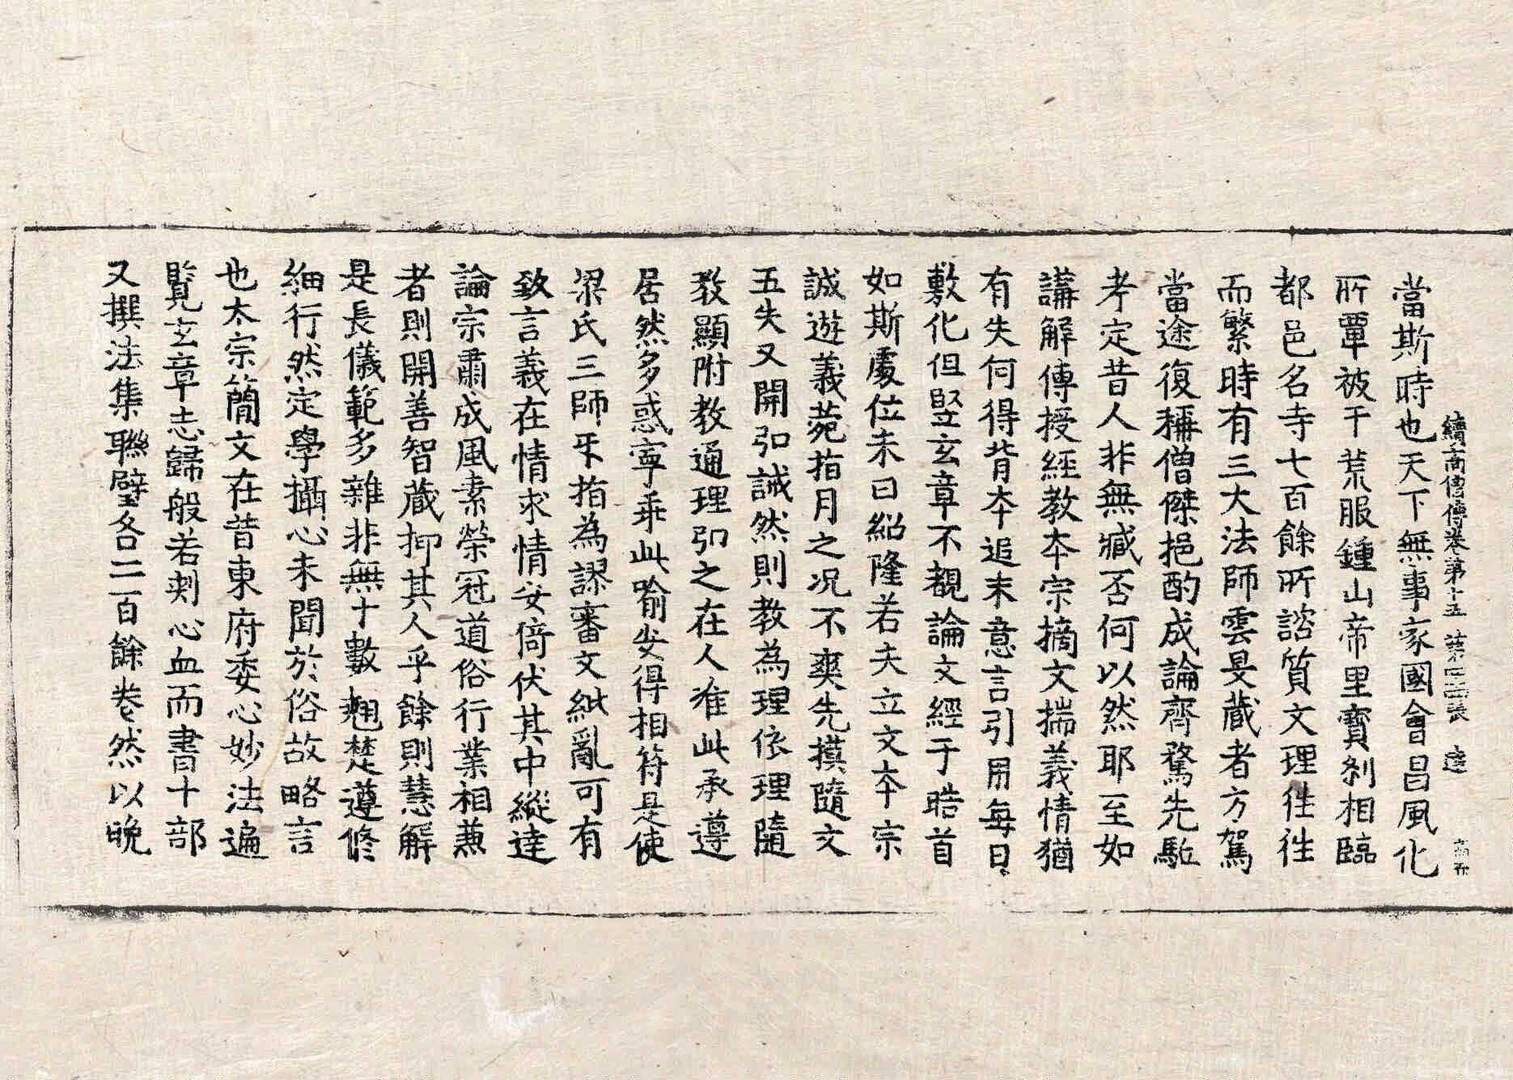 續高僧傳卷第十五 第四張 達
當斯時也天下無事家國會昌風化
所覃被于荒服鍾山帝里寶刹相臨
都邑名寺七百餘所諮質文理徃徃
而繁時有三大法師雲旻藏者方駕
當途復稱僧傑挹酌成論齊騖先駈
考定昔人非無臧否何以然耶至如
講解傳授經教本宗摘文揣義情猶
有失何得背本追末意言引用每日
敷化但竪玄章不覩論文經于晧首
如斯處位未曰紹隆若夫立文本宗
誠遊義菀指月之况不爽先摸隨文
五失又開弘誡然則教為理依理隨
教顯附教通理弘之在人准此承遵
居然多惑寧乖此喻安得相符是使
梁氏三師牙指為謬審文紕亂可有
致言義在情求情安倚伏其中縱達
論宗肅成風素榮冠道俗行業相兼
者則開善智藏抑其人乎餘則慧解
是長儀範多雜非無十數翹楚遵修
細行然定學攝心未聞於俗故略言
也太宗簡文在昔東府委心妙法遍
覧玄章志歸般若刺心血而書十部
又撰法集聯璧各二百餘卷然以晩